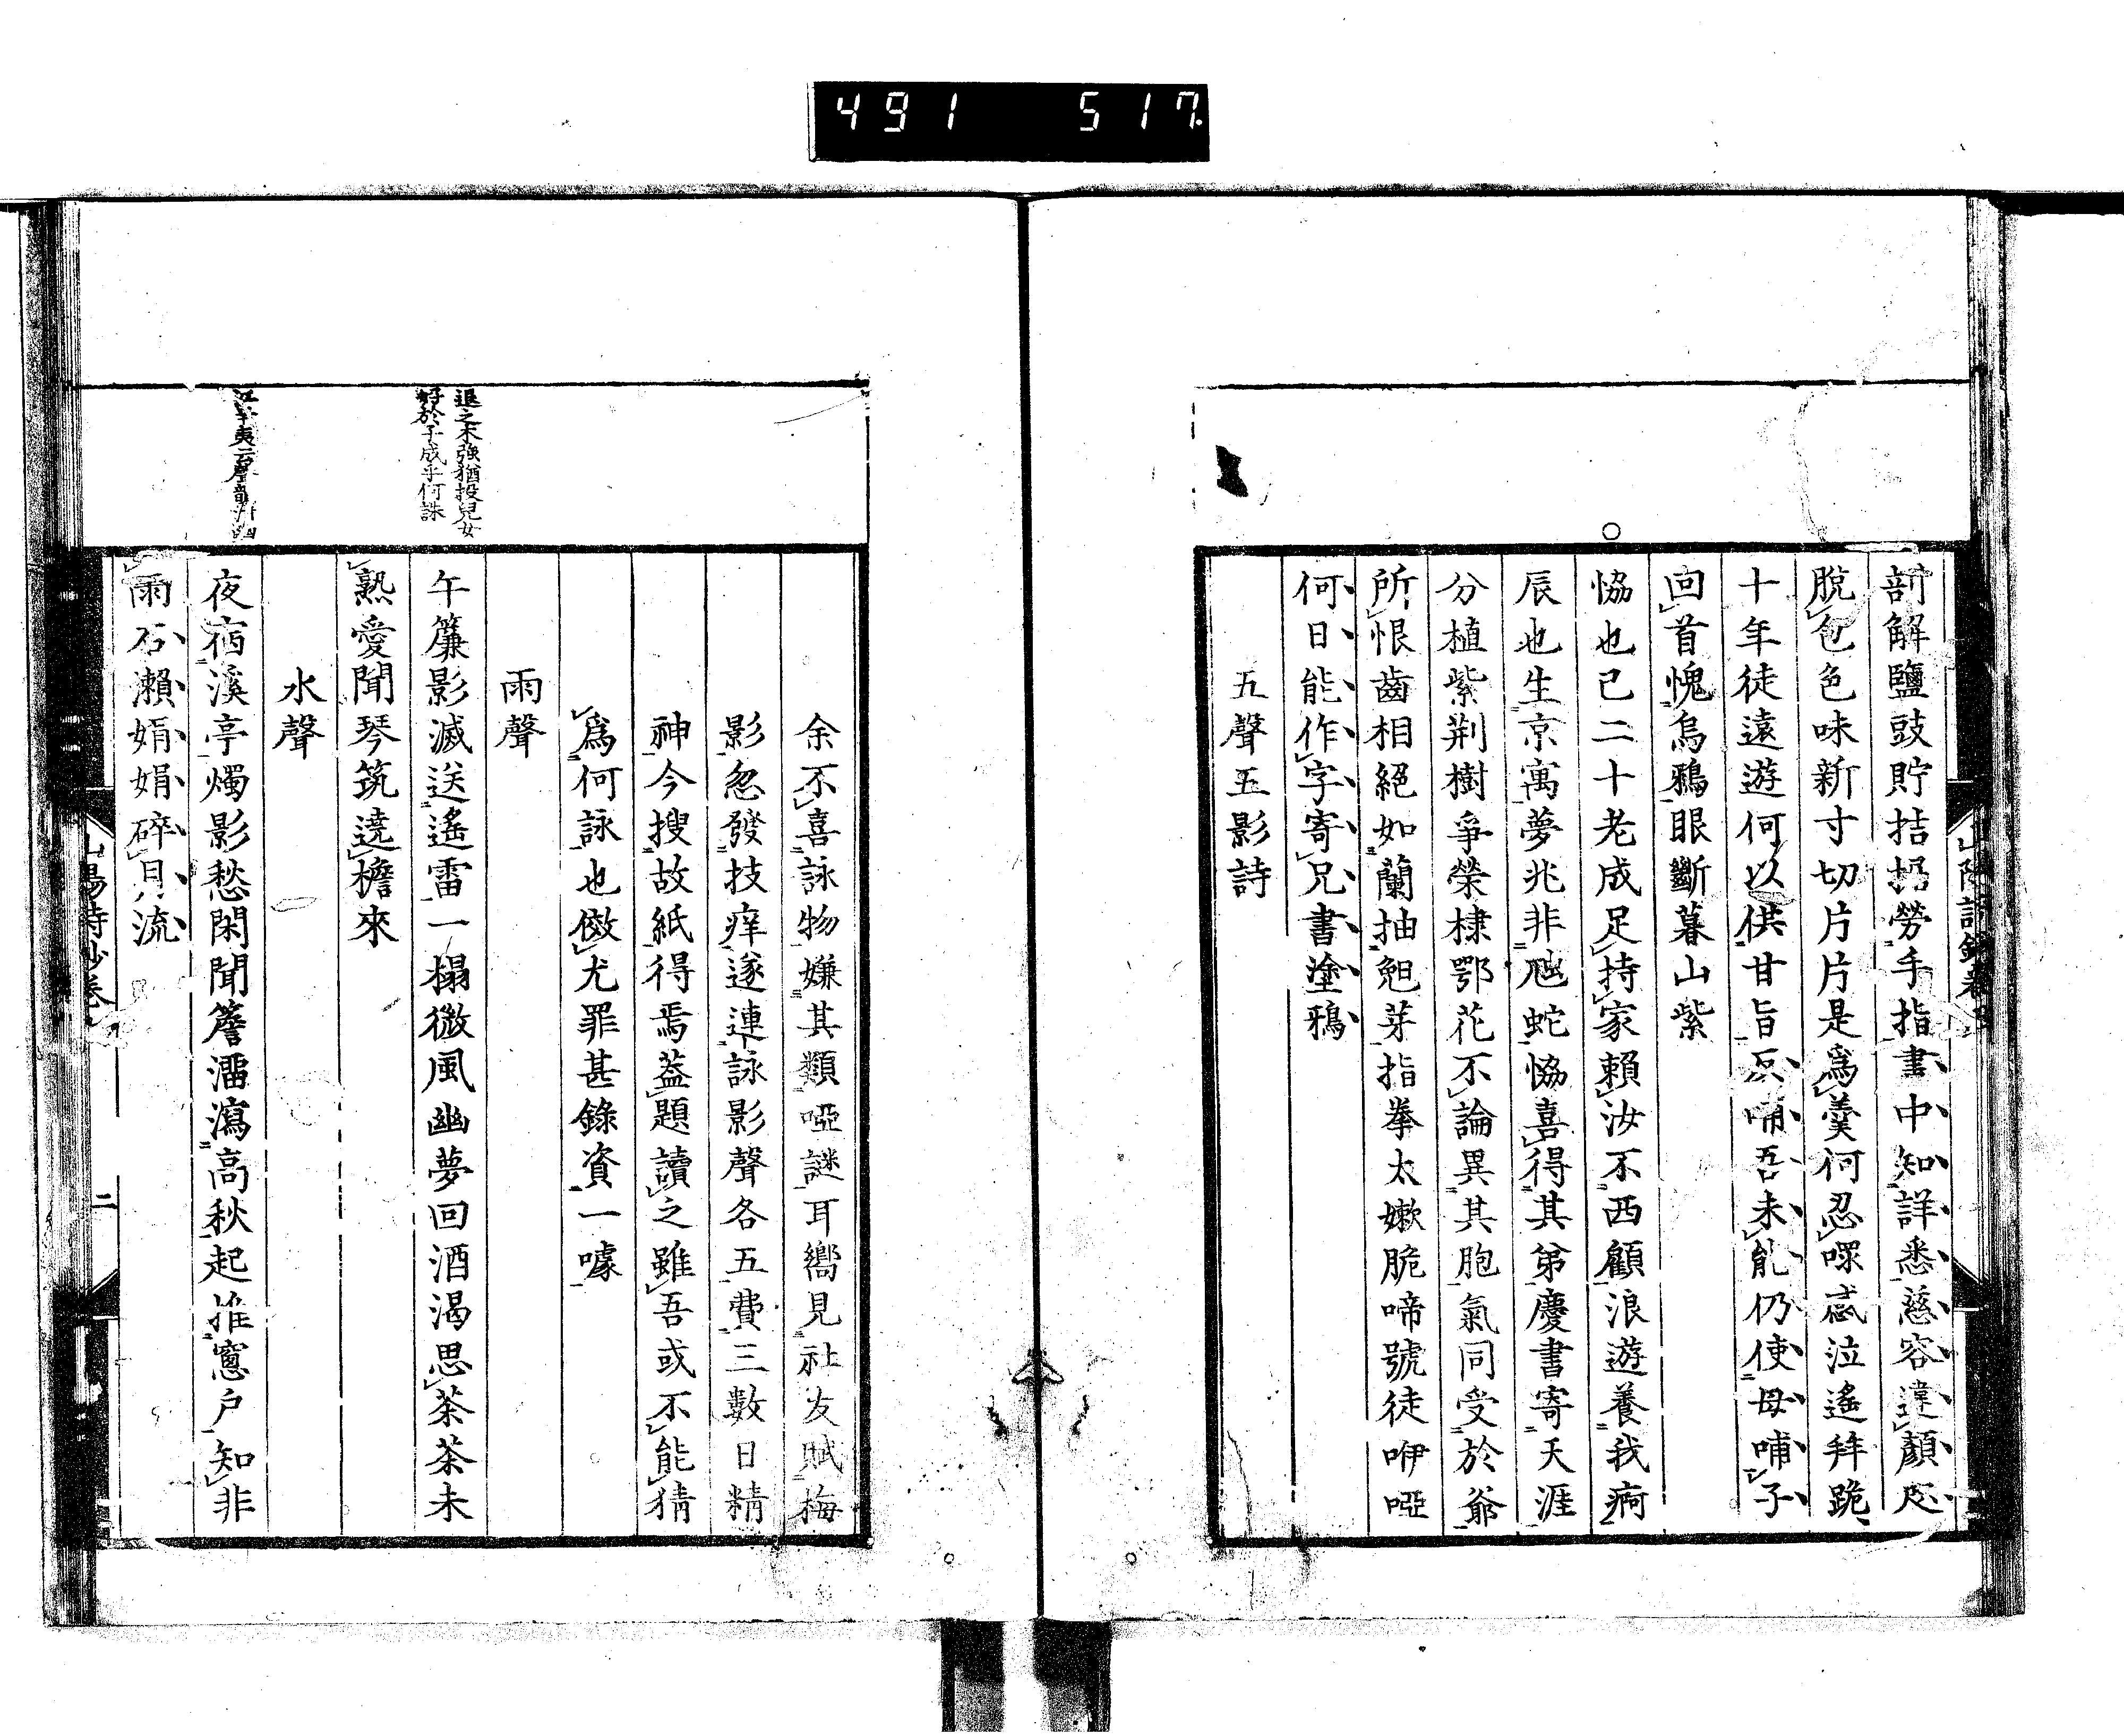 491 517
剖解鹽豉貯拮据勞手指書中知詳悉慈容違顏咫
脫包色味新寸切片片是為羹何忍啜感泣遙拜跪
十年徒遠遊何以供甘旨反哺吾未能仍使母哺子
回首愧烏鴉眼斷暮山紫
恊也已二十老成足持家賴汝不西顧浪遊養我痾
辰也生京寓夢兆非虺蛇恊喜得其弟慶書寄天涯
分植紫荆樹爭榮棣鄂花不論異其胞氣同受於爺
所恨齒相絕如蘭抽芽指拳太嫩脆啼號徒咿啞
何日能作字寄兄書塗鴉
五聲五影詩
余不喜詠物嫌其類啞謎耳嚮見社友賦梅
影忽發技痒遂連詠影聲各五費三數日精
神今搜故紙得焉葢題讀之雖吾或不能猜
為何詠也儆尤罪甚錄資一噱
雨聲
退之未強猶投兒女
好於子成乎何誅
午簾影滅送遙雷一榻微風幽夢回酒渴思茶茶未
熟愛聞琴筑遶檐來
水聲
夜宿溪亭燭影愁閑聞簷溜瀉高秋起推窻戶知非
雨石瀨娟娟碎月流
山陽詩鈔卷
二